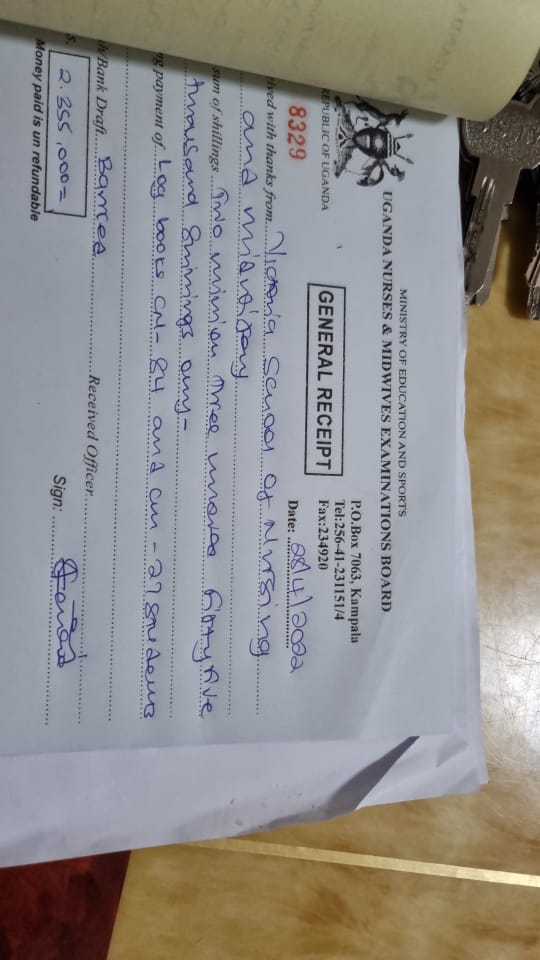 MINISTRY OF EDUCATION AND SPORTS
UGANDA NURSES & MIDWIVES EXAMINATIONS BOARD
P.O.Box 7063, Kampala
Tel:256-41-231151/4
Fax:234920
REPUBLIC OF UGANDA
GENERAL RECEIPT
8329
Date: 28/4/2022
ived with thanks from Victoria School of Nursing
and midwifery
sum of shillings Two million three hundred fifty five
thousand shillings only-
ng payment of Log books CN- 84 and CM - 27 students
h/Bank Draft Received Officer
s. 2.355,000= Sign:
Money paid is un refundable